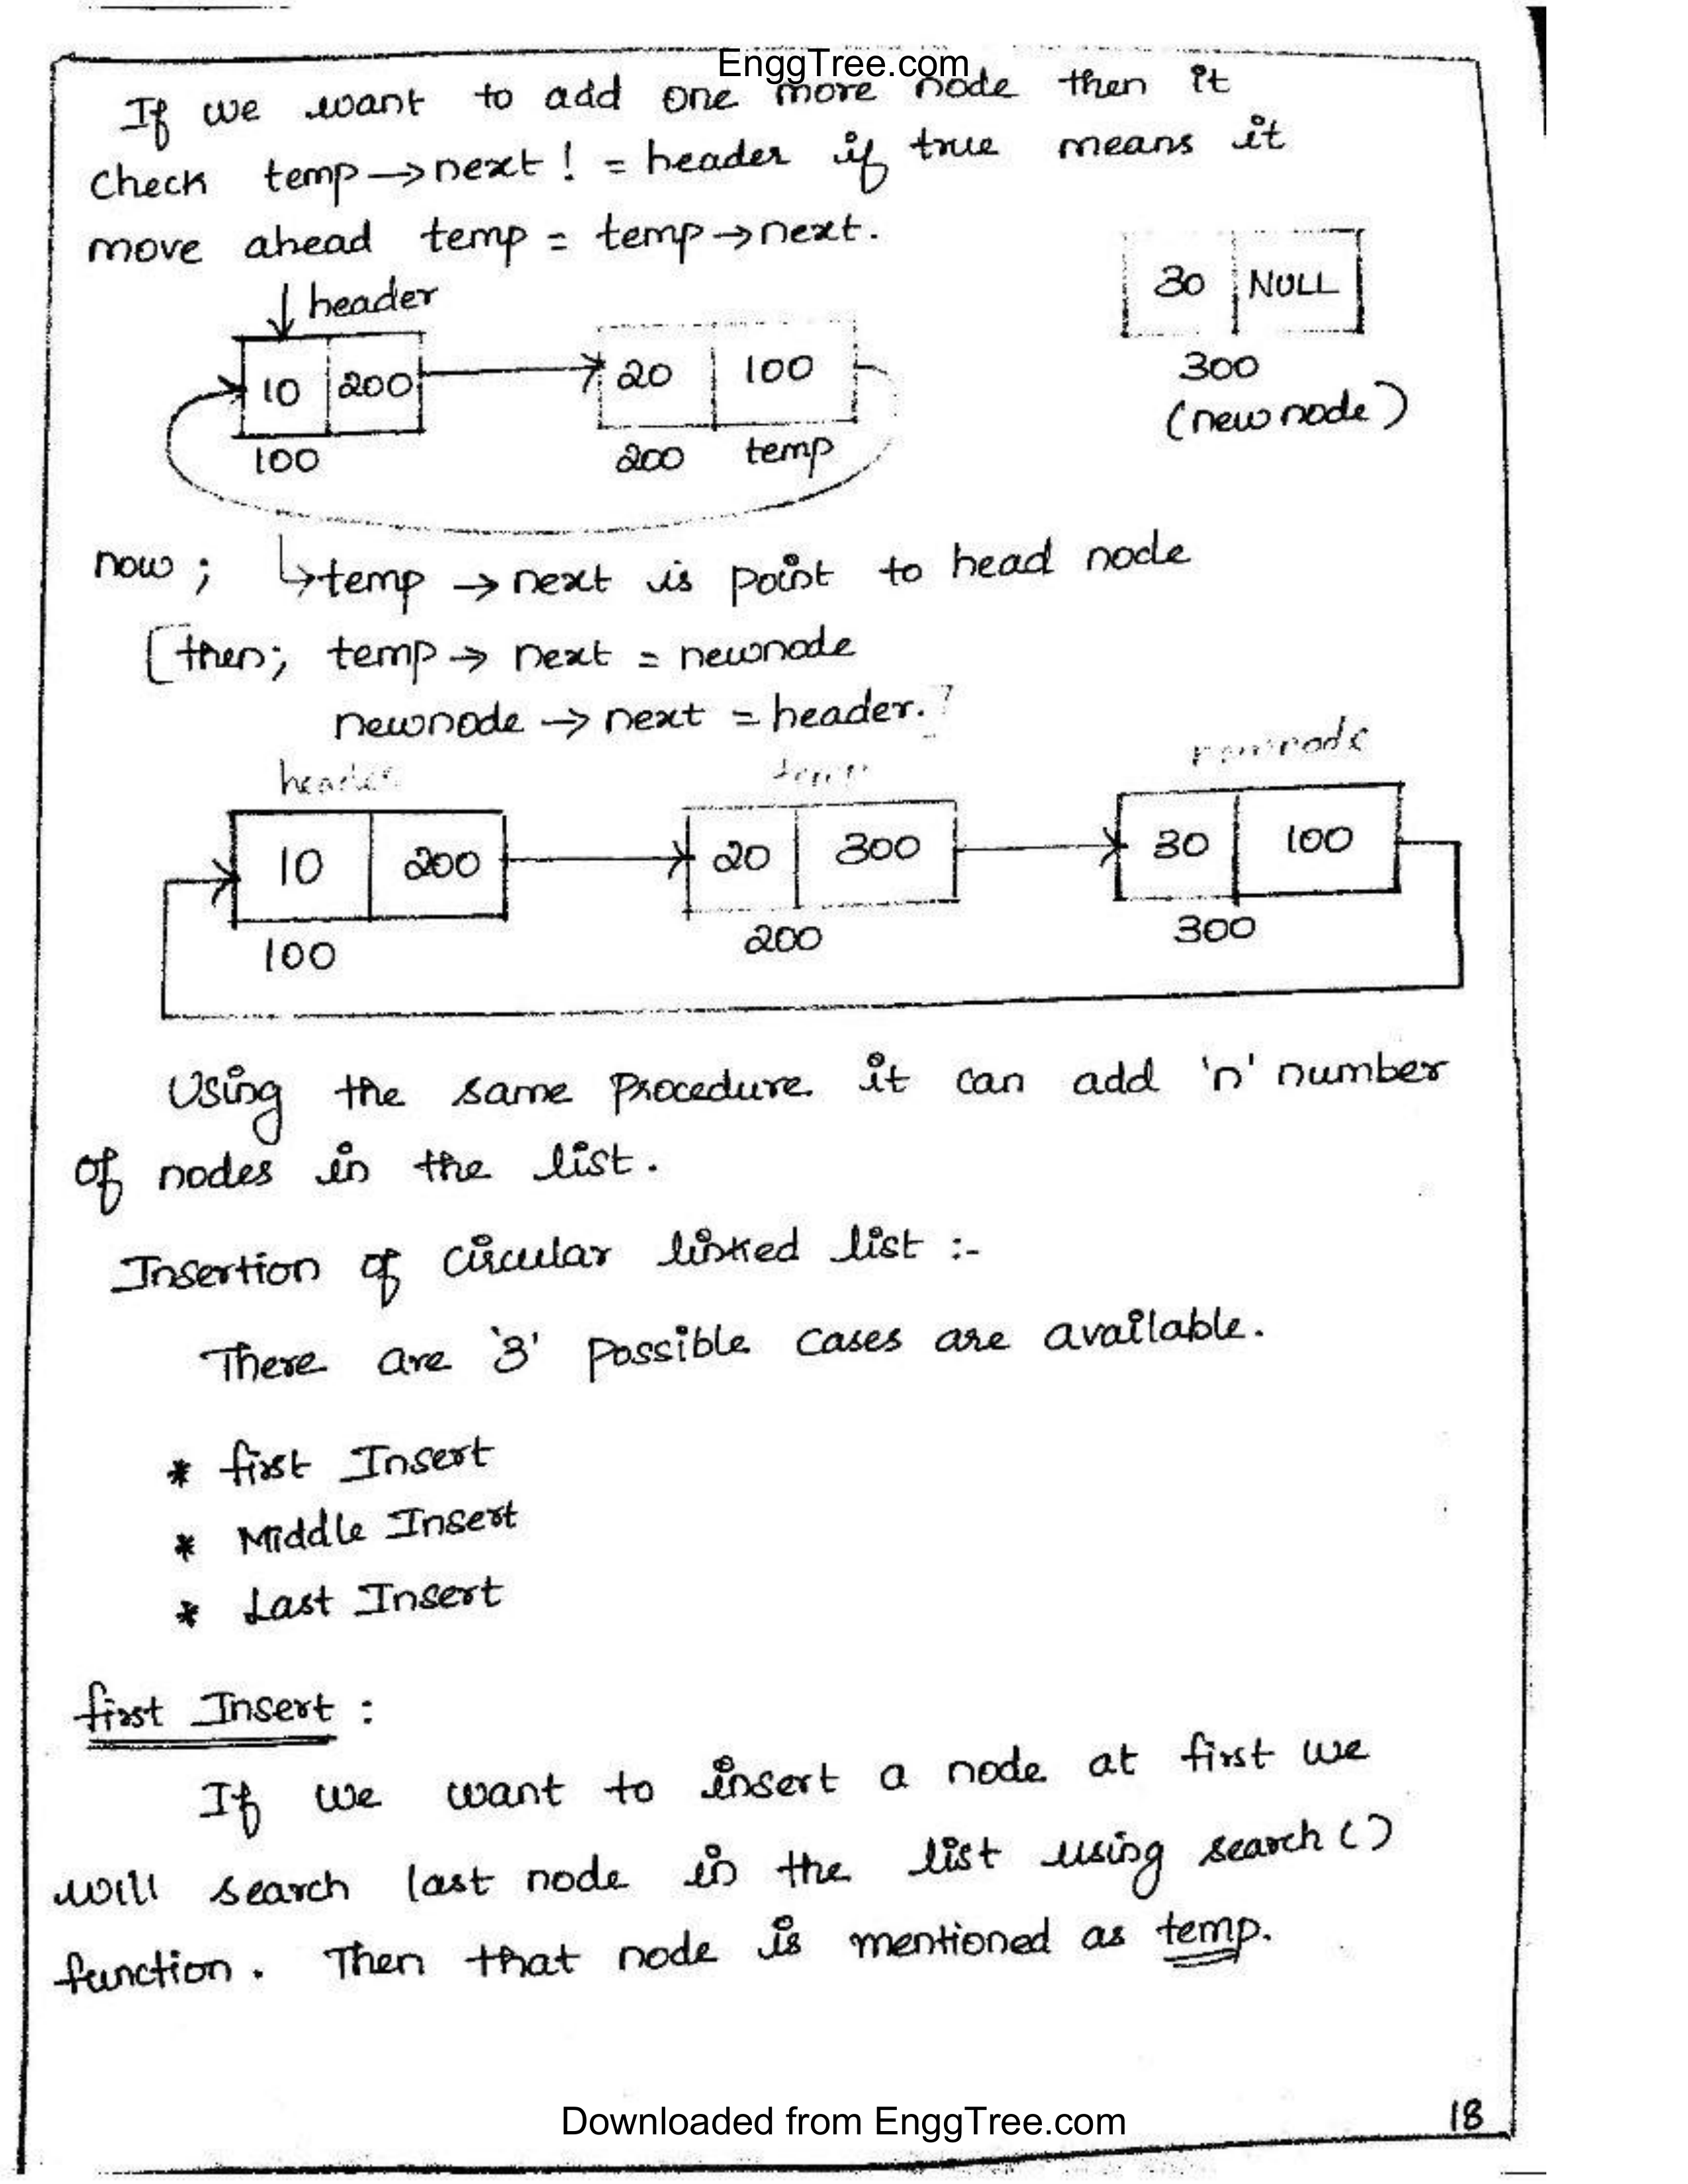 EnggTree.com
If we want to add one more node then it
Check temp→next ! = header if true means it
move ahead temp = temp→next.
↓ header
30 NULL
10 200 20 100
300
(new node)
100 200 temp
now ; ↳temp → next is point to head node
[then; temp → next = newnode
newnode → next = header.]
header temp newnode
10 200 20 300 30 100
100 200 300
Using the same Procedure it can add 'n' number
of nodes in the list.
Insertion of Circular linked list :-
There are '3' possible cases are available.
* first Insert
* Middle Insert
* Last Insert
first Insert :
If we want to insert a node at first we
will search last node in the list using search ( )
function. Then that node is mentioned as temp.
Downloaded from EnggTree.com
18